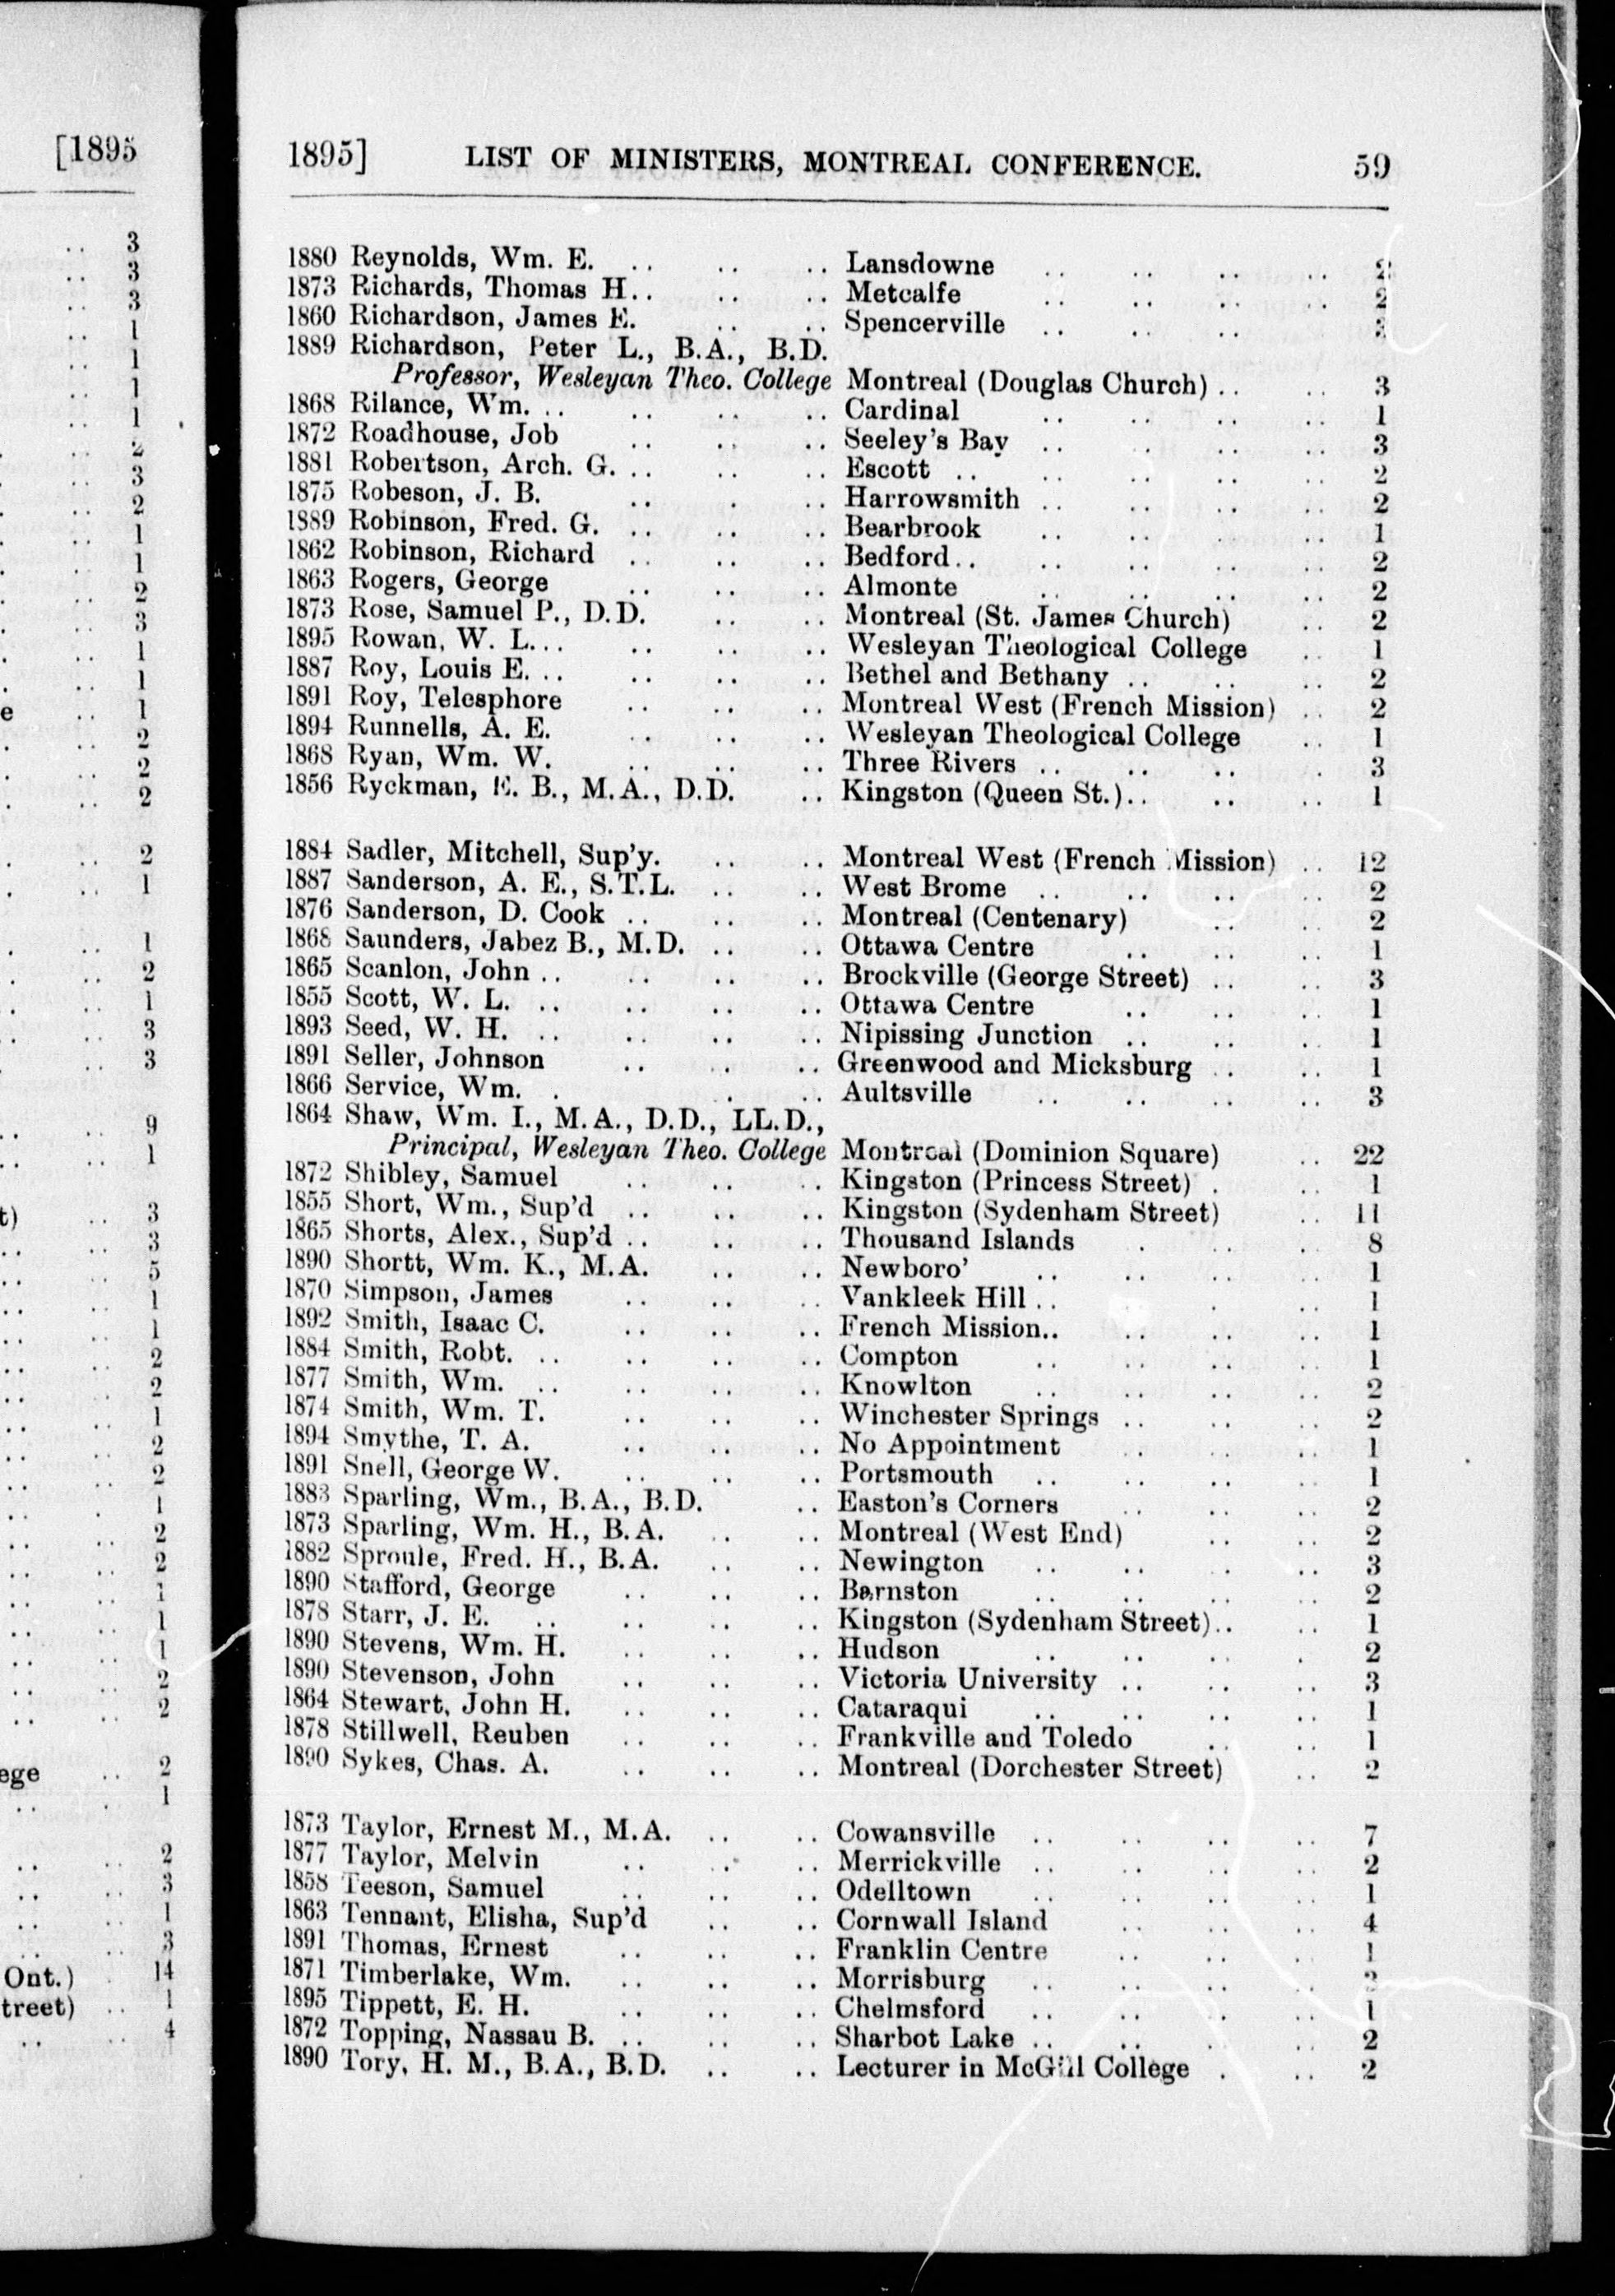 [1895
3
3
3
1
1
1
1
2
3
2
1
1
2
3
1
1
e .. 1
2
2
2
2
1
1
2
1
3
3
9
1
t) .. 3
3
5
1
1
2
2
1
2
2
1
2
2
1
1
1
2
2
ege .. 2
1
2
3
1
3
Ont.) 14
treet) .. 1
4
1895] LIST OF MINISTERS, MONTREAL CONFERENCE. 59
1880 Reynolds, Wm. E. .. .. .. Lansdowne .. .. .. .. 2
1873 Richards, Thomas H.. .. .. Metcalfe .. .. .. .. 2
1860 Richardson, James E. .. .. Spencerville .. .. .. .. 3
1889 Richardson, Peter L., B.A., B.D.
Professor, Wesleyan Theo. College Montreal (Douglas Church) .. .. 3
1868 Rilance, Wm. .. .. .. .. Cardinal .. .. .. .. 1
1872 Roadhouse, Job .. .. .. Seeley's Bay .. .. .. .. 3
1881 Robertson, Arch. G. .. .. .. Escott .. .. .. .. .. 2
1875 Robeson, J. B. .. .. .. Harrowsmith .. .. .. .. 2
1889 Robinson, Fred. G. .. .. .. Bearbrook .. .. .. .. 1
1862 Robinson, Richard .. .. .. Bedford.. .. .. .. .. 2
1863 Rogers, George .. .. .. Almonte .. .. .. .. 2
1873 Rose, Samuel P., D.D. .. .. Montreal (St. James Church) .. 2
1895 Rowan, W. L... .. .. .. Wesleyan Theological College .. 1
1887 Roy, Louis E. .. .. .. .. Bethel and Bethany .. .. .. 2
1891 Roy, Telesphore .. .. .. Montreal West (French Mission) .. 2
1894 Runnells, A. E. .. .. .. Wesleyan Theological College .. 1
1868 Ryan, Wm. W. .. .. .. Three Rivers .. .. .. .. 3
1856 Ryckman, E. B., M.A., D.D. .. Kingston (Queen St.).. .. .. 1
1884 Sadler, Mitchell, Sup'y. .. .. Montreal West (French Mission) .. 12
1887 Sanderson, A. E., S.T.L. .. .. West Brome .. .. .. .. 2
1876 Sanderson, D. Cook .. .. .. Montreal (Centenary) .. .. 2
1868 Saunders, Jabez B., M.D. .. .. Ottawa Centre .. .. .. 1
1865 Scanlon, John .. .. .. .. Brockville (George Street) .. .. 3
1855 Scott, W. L. .. .. .. .. Ottawa Centre .. .. .. 1
1893 Seed, W. H. .. .. .. .. Nipissing Junction .. .. .. 1
1891 Seller, Johnson .. .. .. Greenwood and Micksburg .. .. 1
1866 Service, Wm. . .. .. .. Aultsville .. .. .. .. 3
1864 Shaw, Wm. I., M.A., D.D., LL.D.,
Principal, Wesleyan Theo. College Montreal (Dominion Square) .. 22
1872 Shibley, Samuel .. .. .. Kingston (Princess Street) . .. 1
1855 Short, Wm., Sup'd .. .. .. Kingston (Sydenham Street) .. 11
1865 Shorts, Alex., Sup'd .. .. .. Thousand Islands . .. . 8
1890 Shortt, Wm. K., M.A. .. .. Newboro' .. .. .. .. 1
1870 Simpson, James .. .. .. Vankleek Hill .. . .. 1
1892 Smith, Isaac C. .. .. .. French Mission.. .. .. .. 1
1884 Smith, Robt. .. .. .. .. Compton .. .. .. .. 1
1877 Smith, Wm. .. .. .. .. Knowlton .. .. .. .. 2
1874 Smith, Wm. T. .. .. .. Winchester Springs .. .. .. 2
1894 Smythe, T. A. .. .. .. No Appointment .. .. .. 1
1891 Snell, George W. .. .. .. Portsmouth .. .. .. .. 1
1883 Sparling, Wm., B.A., B.D. .. Easton's Corners .. .. .. 2
1873 Sparling, Wm. H., B.A. .. .. Montreal (West End) .. .. 2
1882 Sproule, Fred. H., B.A. .. .. Newington .. .. .. .. 3
1890 Stafford, George .. .. .. Barnston .. .. .. .. 2
1878 Starr, J. E. .. .. .. .. Kingston (Sydenham Street).. .. 1
1890 Stevens, Wm. H. .. .. .. Hudson .. .. .. . 2
1890 Stevenson, John .. .. .. Victoria University .. .. .. 3
1864 Stewart, John H. .. .. .. Cataraqui .. .. .. .. 1
1878 Stillwell, Reuben .. .. .. Frankville and Toledo .. .. 1
1890 Sykes, Chas. A. .. .. .. Montreal (Dorchester Street) .. 2
1873 Taylor, Ernest M., M.A. .. .. Cowansville .. .. .. .. 7
1877 Taylor, Melvin .. .. .. Merrickville .. .. .. .. 2
1858 Teeson, Samuel .. .. .. Odelltown .. .. .. .. 1
1863 Tennant, Elisha, Sup'd .. .. Cornwall Island .. .. .. 4
1891 Thomas, Ernest .. .. .. Franklin Centre .. .. .. 1
1871 Timberlake, Wm. .. .. .. Morrisburg .. .. .. ..
1895 Tippett, E. H. .. .. .. Chelmsford .. .. .. .. 1
1872 Topping, Nassau B. .. .. .. Sharbot Lake .. .. .. .. 2
1890 Tory, H. M., B.A., B.D. .. .. Lecturer in McGill College . .. 2